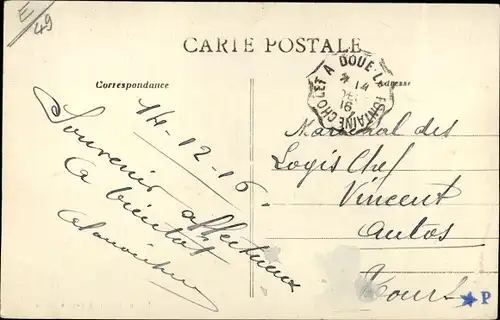 E/49
CARTE POSTALE
Correspondance
Adresse
CHOLET A DOUE-LA-FONTAINE
14
16
14-12-16
Souvenir affectueux
A bientôt
Marechal des
Logis Chef
Vincent
Autos
Tours
P